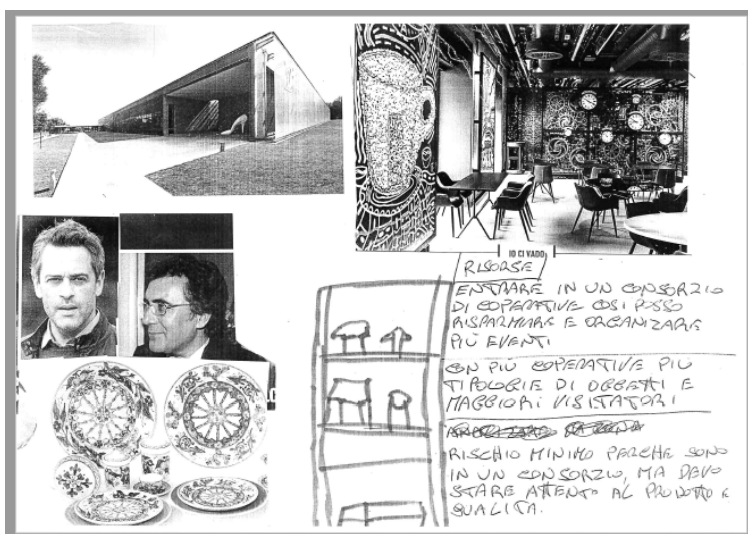 IO CI VADO
RISORSE
ENTRARE IN UN CONSORZIO
DI COPERATIVE COSI POSSO
RISPARMIARE E ORGANIZARE
PIÙ EVENTI
CON PIÙ COPERATIVE PIÙ
TIPOLOGIE DI OGGETTI E
MAGGIORI VISITATORI
RISCHIO MINIMO PERCHE SONO
IN UN CONSORZIO, MA DEVO
STARE ATTENTO AL PRODOTTO E
QUALITA.